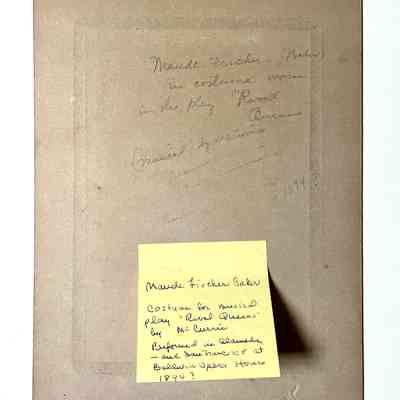 Maude Fischer (Baker)
in costume worn
in the play "Rival
Queens
(musical by
1894?
Maude Fischer Baker
Costume for musical
play "Rival Queens"
by McCurrie
Performed in Alameda
— and San Francisco at
Baldwin Opera House
1894?